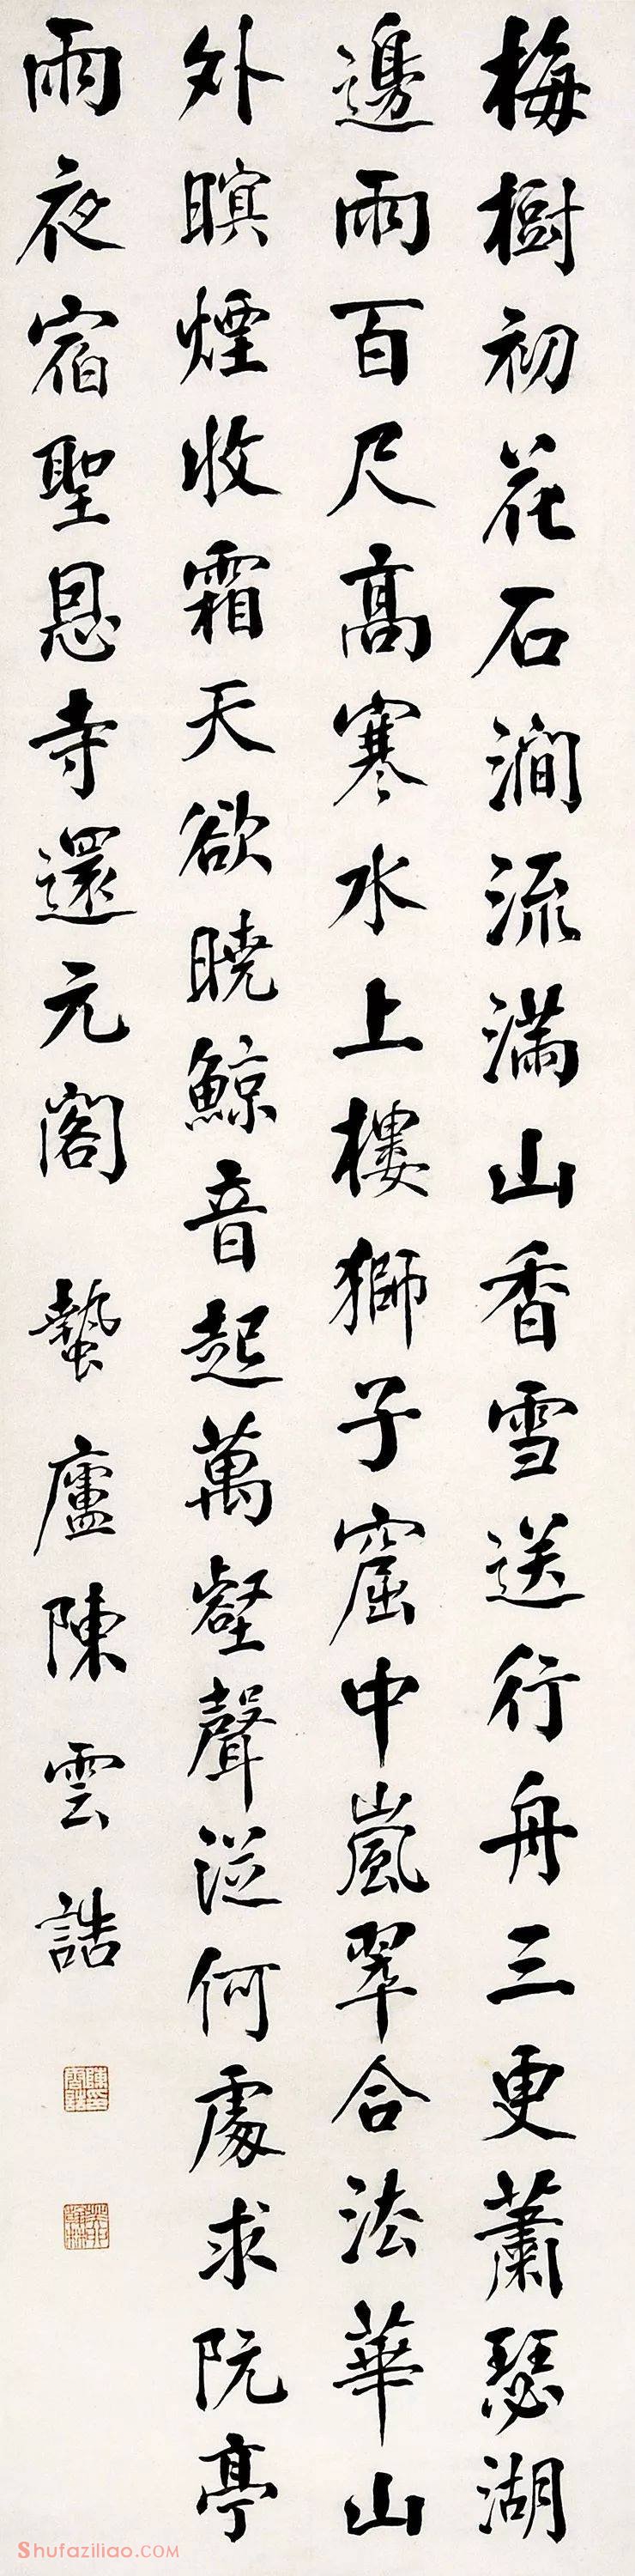 梅樹初花石澗流滿山香雪送行舟三更蕭瑟湖
邊雨百尺高寒水上樓獅子窟中嵐翠合法華山
外暝煙收霜天欲曉鯨音起萬壑聲從何處求阮亭
雨夜宿聖恩寺還元閣 蟄廬陳雲誥
Shufaziliao.COM